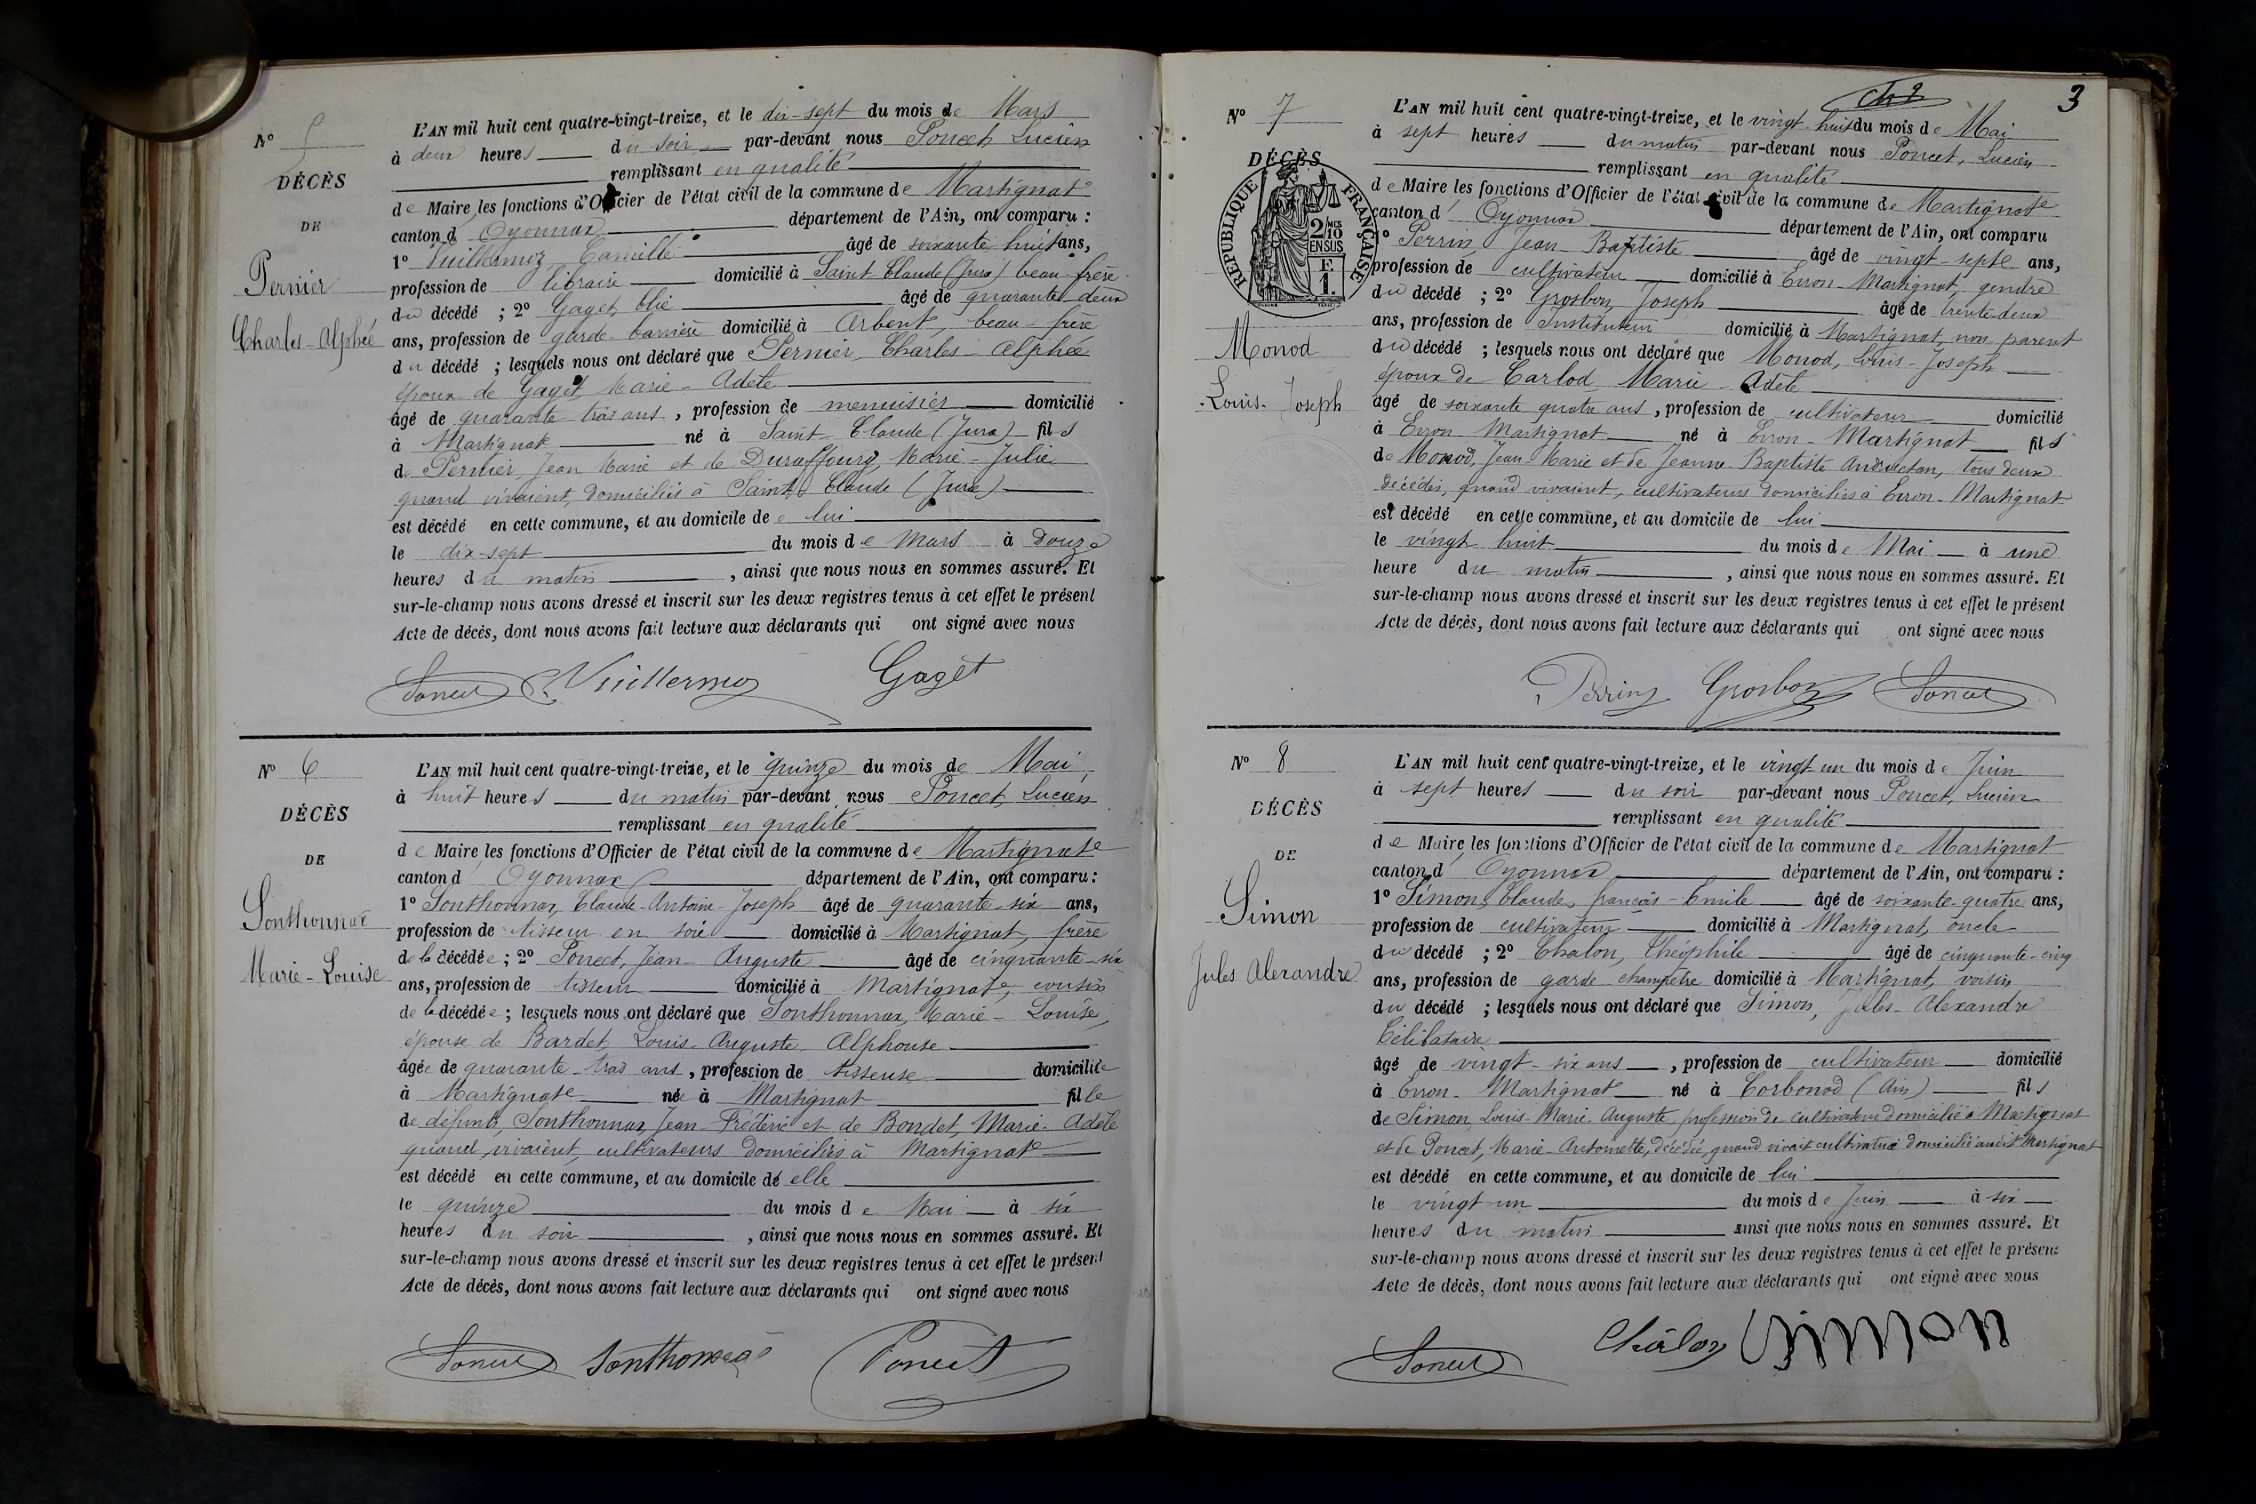 Nº 5
DÉCÈS
DE
Pernier
Charles-Alphée
L'AN mil huit cent quatre-vingt-treize, et le dix-sept du mois de Mars
à deux heures du soir par-devant nous Poncet Lucien
remplissant en qualité
de Maire les fonctions d'Officier de l'état civil de la commune de Martignat
canton d'Oyonnax département de l'Ain, ont comparu :
1º Vuillermoz Camille âgé de soixante huit ans,
profession de libraire domicilié à Saint Claude (Jura) beau-frère
du décédé ; 2º Gaget, âgé de quarante deux
ans, profession de garde-barrière domicilié à Arbent, beau-frère
du décédé ; lesquels nous ont déclaré que Pernier, Charles-Alphée
époux de Gaget Marie-Adèle
âgé de quarante trois ans, profession de menuisier domicilié
à Martignat né à Saint-Claude (Jura) fils
de Pernier, Jean Marie et de Duraffourg, Marie-Julie
quand vivaient, domiciliés à Saint-Claude (Jura)
est décédé en cette commune, et au domicile de lui
le dix-sept du mois de Mars à douze
heures du matin, ainsi que nous nous en sommes assuré. Et
sur-le-champ nous avons dressé et inscrit sur les deux registres tenus à cet effet le présent
Acte de décès, dont nous avons fait lecture aux déclarants qui ont signé avec nous
Poncet C. Vuillermoz Gaget
Nº 6
DÉCÈS
DE
Sonthonnax
Marie-Louise
L'AN mil huit cent quatre-vingt-treize, et le quinze du mois de Mai,
à huit heures du matin par-devant nous Poncet, Lucien
remplissant en qualité
de Maire les fonctions d'Officier de l'état civil de la commune de Martignat
canton d'Oyonnax département de l'Ain, ont comparu :
1º Sonthonnax, Claude-Antoine-Joseph âgé de quarante-six ans,
profession de tisseur en soie domicilié à Martignat, frère
de la décédée ; 2º Poncet, Jean-Auguste âgé de cinquante-six
ans, profession de tisseur domicilié à Martignat, cousin
de la décédée ; lesquels nous ont déclaré que Sonthonnax, Marie-Louise,
épouse de Bardet Louis-Auguste-Alphonse
âgée de quarante-trois ans, profession de tisseuse domiciliée
à Martignat née à Martignat fille
de défunts, Sonthonnax, Jean-Frédéric et de Bondet, Marie-Adèle
quand vivaient, cultivateurs domiciliés à Martignat
est décédé en cette commune, et au domicile de elle
le quinze du mois de Mai à six
heures du soir, ainsi que nous nous en sommes assuré. Et
sur-le-champ nous avons dressé et inscrit sur les deux registres tenus à cet effet le présent
Acte de décès, dont nous avons fait lecture aux déclarants qui ont signé avec nous
Poncet Sonthonnax Poncet
3
Nº 7
DÉCÈS
RÉPUBLIQUE FRANÇAISE
2/10 MES
EN SUS
F.
1.
Monod
Louis-Joseph
L'AN mil huit cent quatre-vingt-treize, et le vingt-huit du mois de Mai
à sept heures du matin par-devant nous Poncet, Lucien
remplissant en qualité
de Maire les fonctions d'Officier de l'état civil de la commune de Martignat
canton d'Oyonnax département de l'Ain, ont comparu
1º Perrin Jean-Baptiste âgé de vingt-sept ans,
profession de cultivateur domicilié à Evron-Martignat, gendre
du décédé ; 2º Grosbon, Joseph âgé de trente-deux
ans, profession de Instituteur domicilié à Martignat, non parent
du décédé ; lesquels nous ont déclaré que Monod, Louis-Joseph
époux de Carlod, Marie-Adèle
âgé de soixante quatre ans, profession de cultivateur domicilié
à Evron-Martignat né à Evron-Martignat fils
de Monod, Jean-Marie et de Jeanne-Baptiste tous deux
décédés, quand vivaient, cultivateurs domiciliés à Evron-Martignat
est décédé en cette commune, et au domicile de lui
le vingt huit du mois de Mai à une
heure du matin, ainsi que nous nous en sommes assuré. Et
sur-le-champ nous avons dressé et inscrit sur les deux registres tenus à cet effet le présent
Acte de décès, dont nous avons fait lecture aux déclarants qui ont signé avec nous
Perrin Grosbon Poncet
Nº 8
DÉCÈS
DE
Simon
Jules Alexandre
L'AN mil huit cent quatre-vingt-treize, et le vingt-un du mois de Juin
à sept heures du soir par-devant nous Poncet, Lucien
remplissant en qualité
de Maire les fonctions d'Officier de l'état civil de la commune de Martignat
canton d'Oyonnax département de l'Ain, ont comparu :
1º Simon, Claude, françois-Emile âgé de soixante-quatre ans,
profession de cultivateur domicilié à Martignat, oncle
du décédé ; 2º Chalon, Théophile âgé de cinquante-cinq
ans, profession de garde champêtre domicilié à Martignat, voisin
du décédé ; lesquels nous ont déclaré que Simon, Jules-Alexandre
Célibataire
âgé de vingt-six ans, profession de cultivateur domicilié
à Evron-Martignat né à Corbonod (Ain) fils
de Simon, Louis-Marie-Auguste, profession de cultivateur domicilié à Martignat
et de Poncet, Marie-Antoinette, décédée, quand vivait cultivatrice domiciliée audit Martignat
est décédé en cette commune, et au domicile de lui
le vingt-un du mois de Juin à six
heures du matin ainsi que nous nous en sommes assuré. Et
sur-le-champ nous avons dressé et inscrit sur les deux registres tenus à cet effet le présent
Acte de décès, dont nous avons fait lecture aux déclarants qui ont signé avec nous
Poncet Châlon Simon